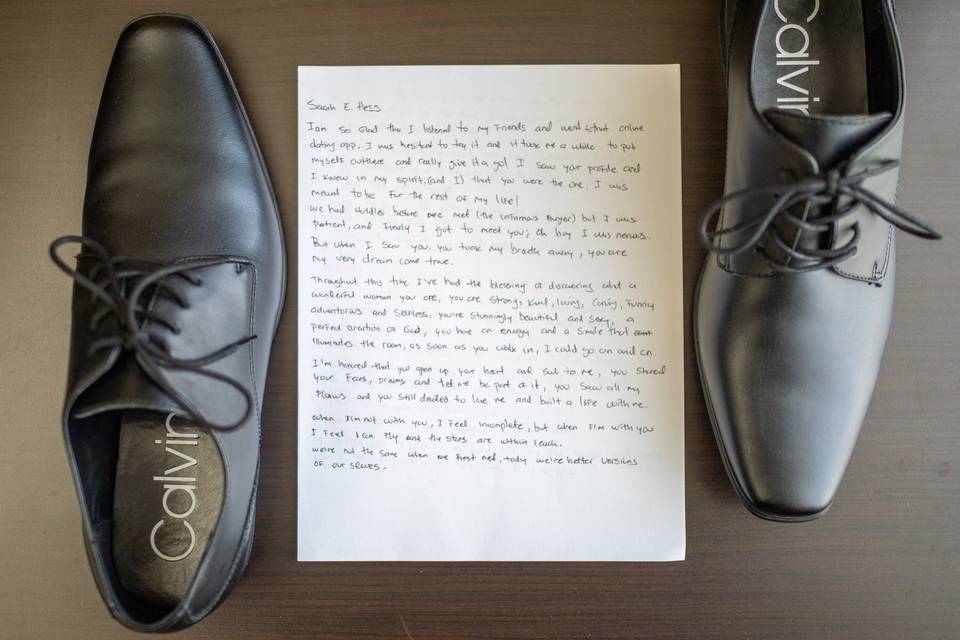 Sarah E. Hess
I am so Glad tha I listened to my Friends and went to that online
dating app. I was hesitant to try it and it took me a while to put
myself outthere and really give it a go! I saw your profile and
I knew in my spirit, (and I) that you were the one, I was
meant to be for the rest of my life!
We had Hurdles before we met (the infamous Burger) but I was
Patient, and Finally I got to meet you; Oh boy I was nervous.
But when I saw you, you took my breath away, you are
my very dream come true.
Throughout this time I've had the blessing of discovering what a
wonderful woman you are, you are strong, Kind, loving, Caring, Funny
adventurous and Selfless, you're stunningly beautiful and sexy, a
perfect creation of God, you have an energy and a smile that
Illuminates the room, as soon as you walk in, I could go on and on.
I'm honored that you open up your heart and soul to me, you shared
your Fears, Dreams and let me be part of it, you saw all my
Flaws and you still decided to love me and built a life with me.
When I'm not with you, I feel incomplete, but when I'm with you
I Feel I can Fly and the stars are within reach.
We're not the same when we First met, today we're better versions
OF our selves.
Calvin
Calvin